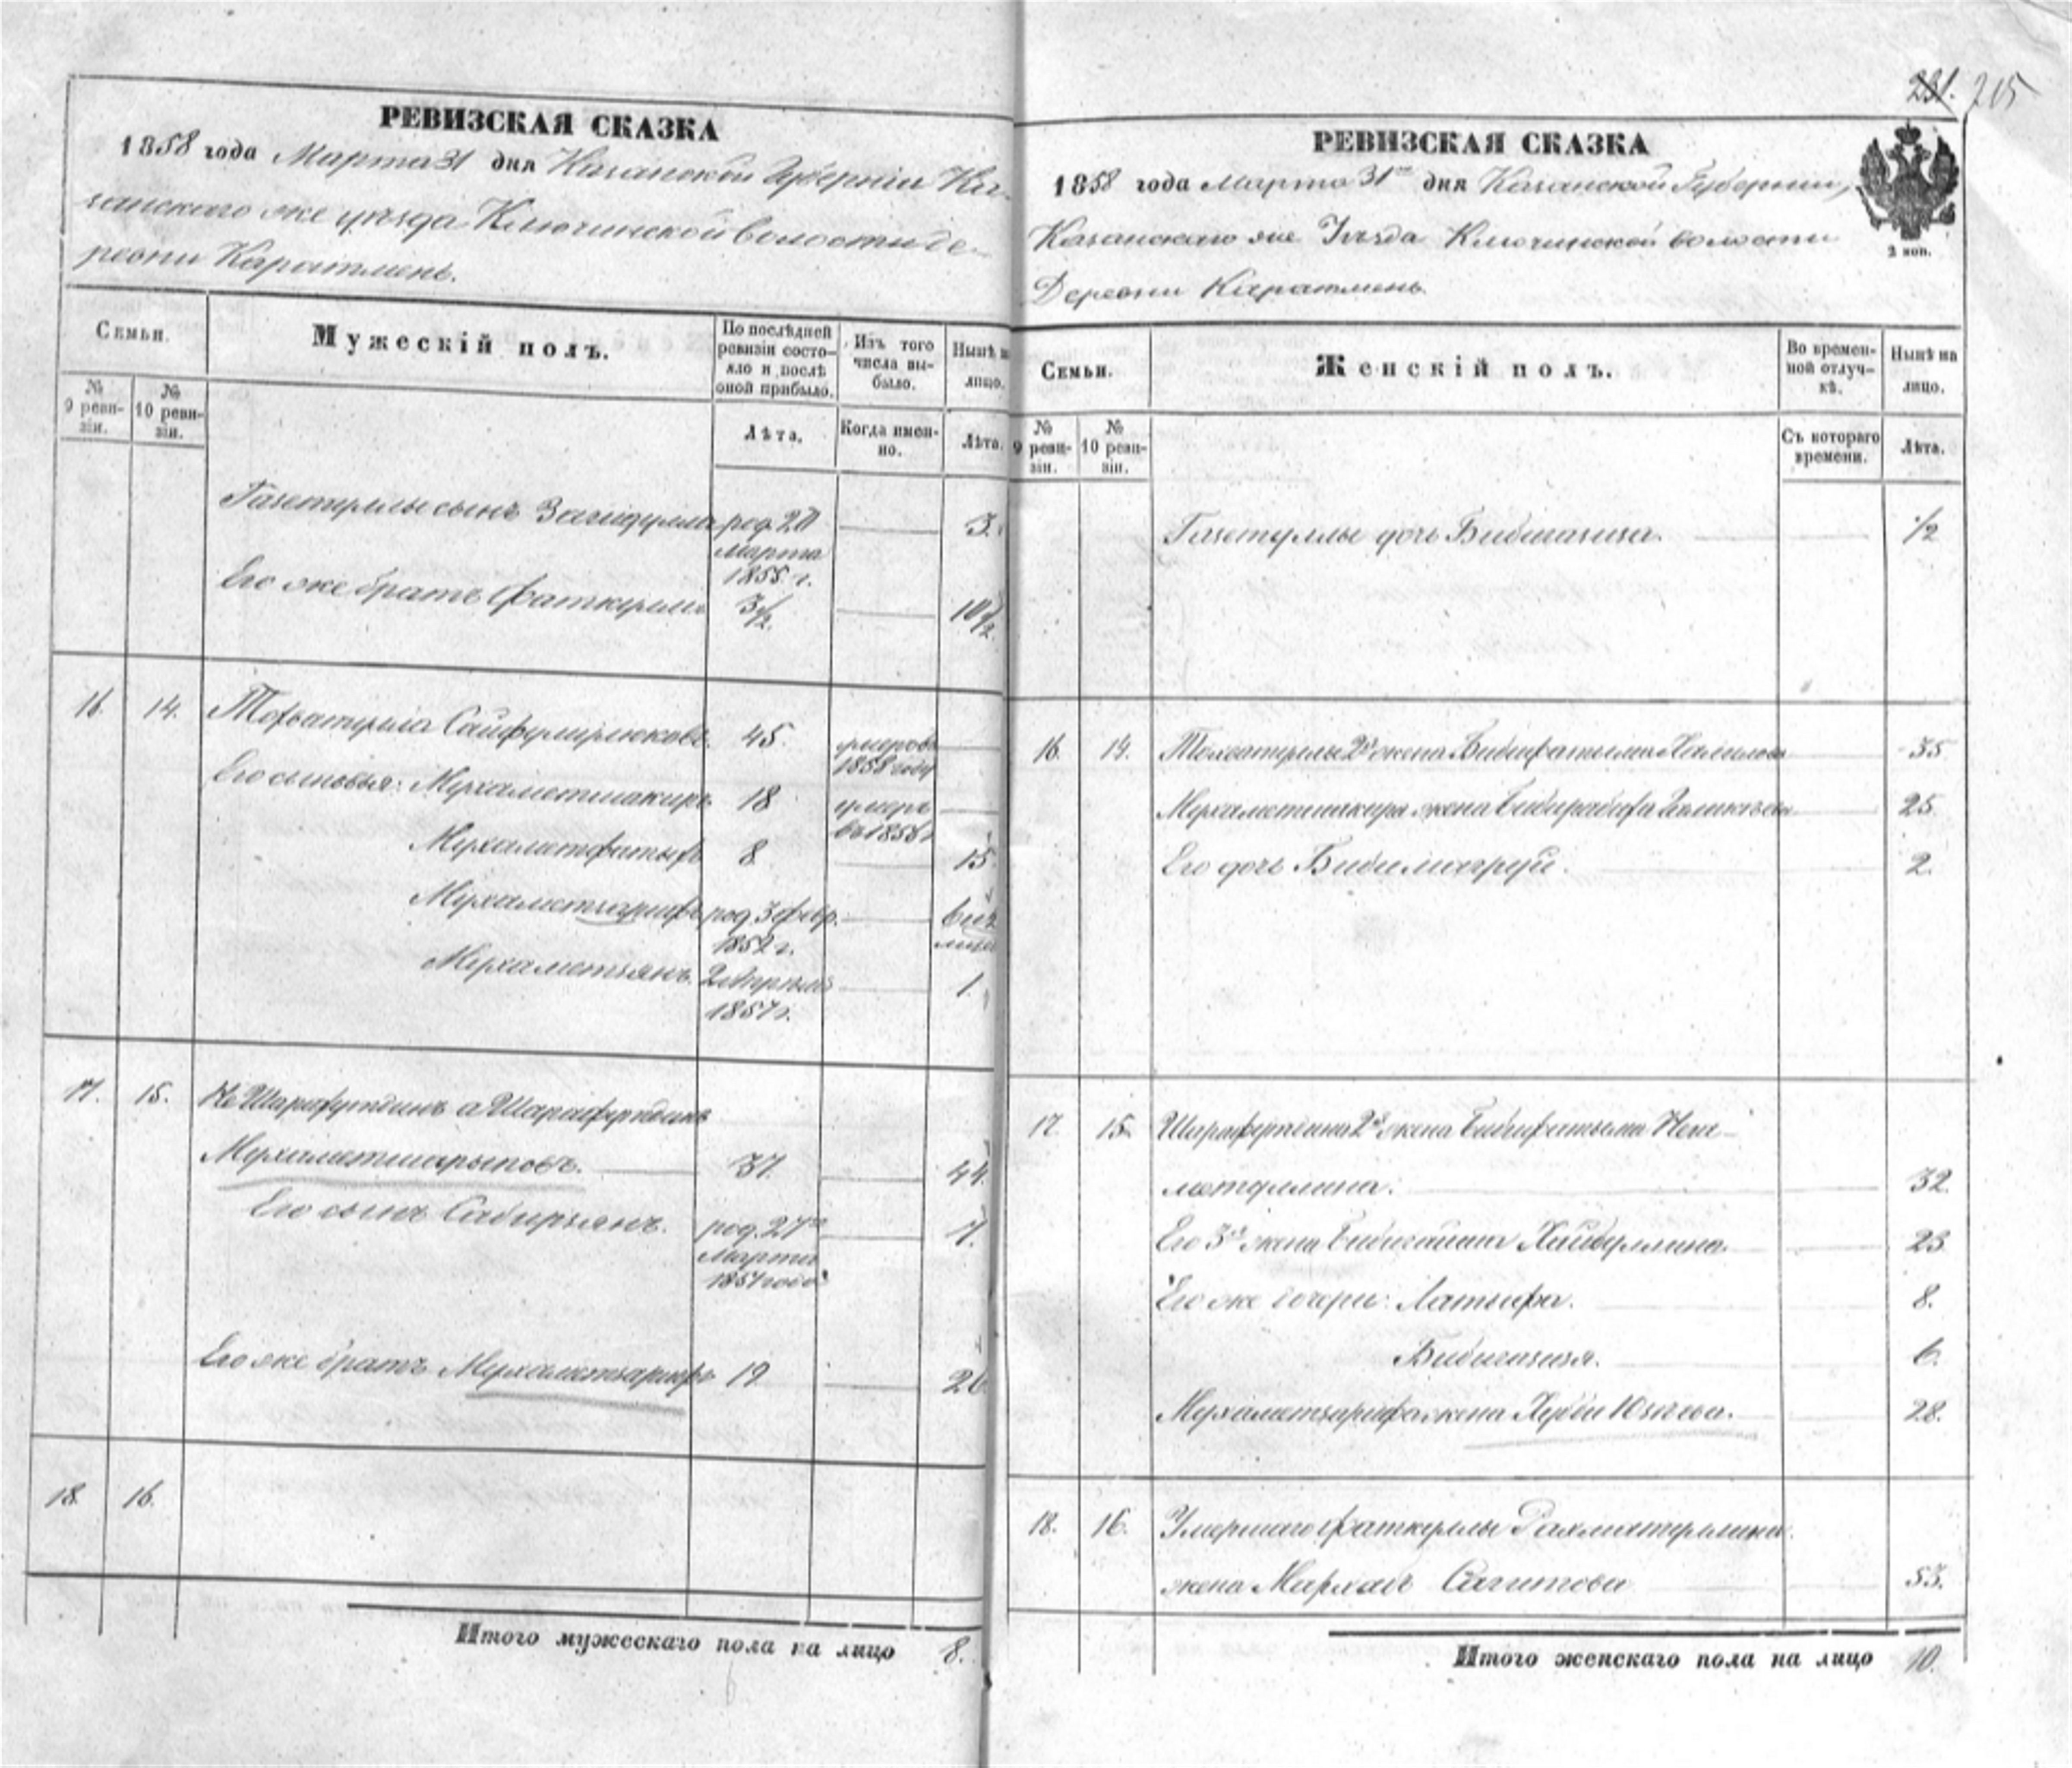 231. 215
РЕВИЗСКАЯ СКАЗКА
1858 года Марта 31 дня Казанской Губернiи Ка-
занскаго же уѣзда Ключинской волости де-
ревни Каратмень.
Семьи.
Мужескiй полъ.
По послѣдней ревизiи состо-яло и послѣ оной прибыло.
Изъ того числа вы-было.
Нынѣ на лицо.
№ 9 реви-зiи.
№ 10 реви-зiи.
Лѣта.
Когда имен-но.
Лѣта.
Газетуллы сынъ Загидулла род. 20 Марта 1855 г. 3.
Его же братъ Фаткулла 3 1/2 10 1/2
16. 14. Сайфулмулюковъ. 45. 1858 году
Его сыновья: Мухаметшакиръ 18 умеръ въ 1856 г
Мухаметфатыхъ 8 15
Мухаметзарифъ род. 3 февр. 1852 г.
Мухаметзянъ. 2 Апрѣля 1857 г. 1.
17. 15. Не Шарафутдинъ а Шарафутдинъ
Мухаметшарыповъ. 37. 44.
Его сынъ Сабирзянъ. род. 27го Марта 1851 года 7.
Его же братъ Мухаметзарифъ 19 26
18. 16.
Итого мужескаго пола на лицо 8.
РЕВИЗСКАЯ СКАЗКА
1858 года Марта 31го дня Казанской Губернiи,
Казанскаго же Уѣзда Ключинской волости
Деревни Каратмень.
2 коп.
Семьи.
Женскiй полъ.
Во времен-ной отлуч-кѣ.
Нынѣ на лицо.
№ 9 реви-зiи.
№ 10 реви-зiи.
Съ котораго времени.
Лѣта.
Газетуллы дочь Бибигазиза. 1/2
16. 14. 2я жена Бибифатыма 35
Мухаметшакира жена 25.
Его дочь 2.
17. 15. Шарафутдина 2я жена Бибифатыма Неме-
метуллина. 32.
Его 3я жена Хайбуллина. 23
Его же дочери: Латыфа. 8.
Бибигазизя. 6.
Мухаметзарифа жена Хубби Юзѣева. 28.
18. 16. Умершаго Фаткуллы Рахматуллина
жена Сагитова 53.
Итого женскаго пола на лицо 10.